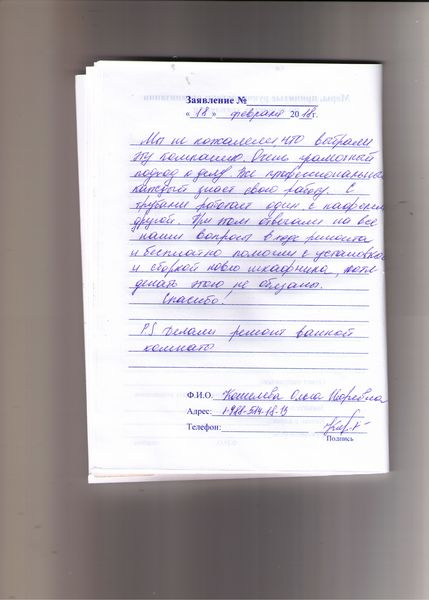 Заявление №
« 18 » февраля 2018г.
Мы не пожалели, что выбрали
эту компанию. Очень грамотный
подход к делу. Все профессионалы,
каждый знает свою работу. С
трубами работает один, с кафелем
другой. При этом отвечали на все
наши вопросы в ходе ремонта
и бесплатно помогли с установкой
и сборкой нового шкафчика, хотя
делать этого не обязаны.
Спасибо!
PS Делали ремонт ванной
комнаты
Ф.И.О. Кошелева Ольга Игоревна
Адрес: 1-988-514-18-13
Телефон:
Подпись